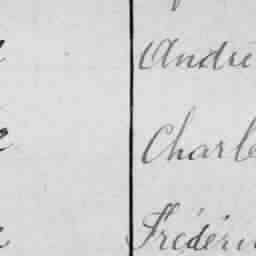 André
Charle
Frédéri